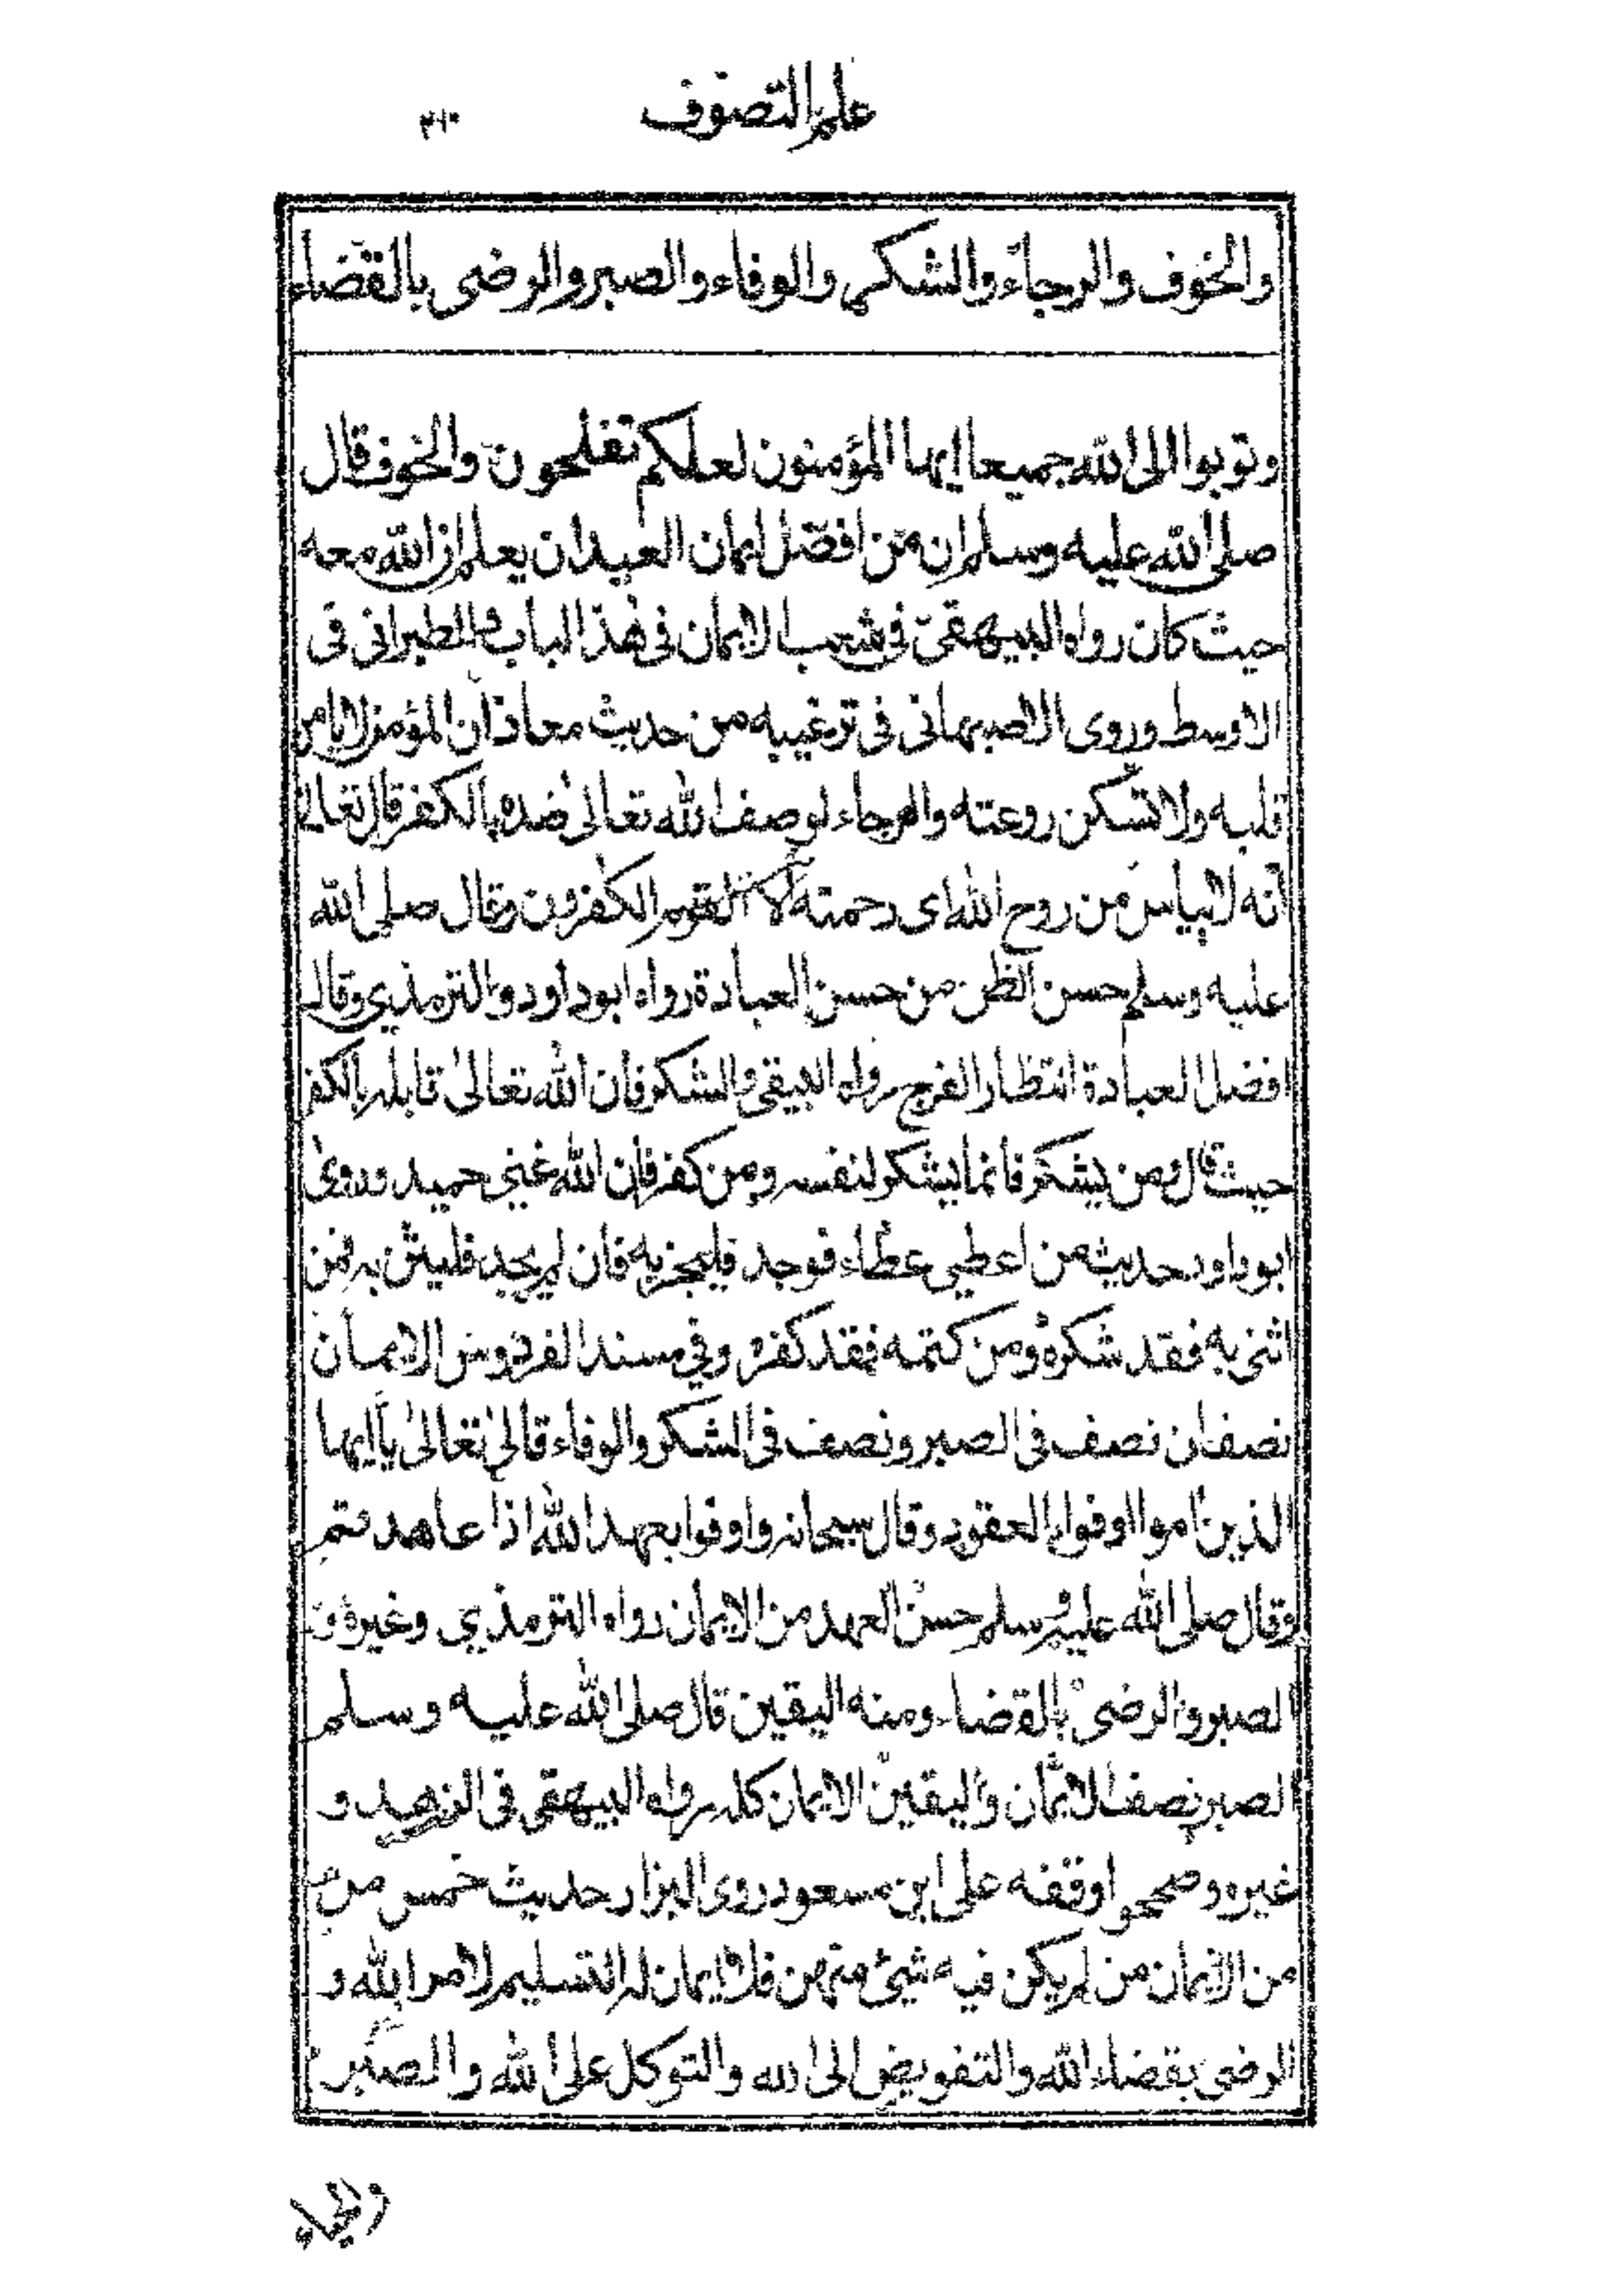 علم التصوف ٣١٠
والخوف والرجاء والشكر والوفاء والصبر والرضى بالقضاء
وتوبوا الى الله جميعا ايها المؤمنون لعلكم تفلحون والخوف قال
صلى الله عليه وسلم ان من افضل ايمان العبد ان يعلم ان الله معه
حيث كان رواه البيهقي في شعب الايمان في هذا الباب والطبراني في
الاوسط وروى الاصبهانى فى ترغيبه من حديث معاذ ان المؤمن لا يامن
قلبه ولا تسكن روعته والرجاء لوصف الله تعالى ضده بالكفر قال تعالى
انه لا ييأس من روح الله اى رحمته الا القوم الكفرون وقال صلى الله
عليه وسلم حسن الظن من حسن العبادة رواه ابوداود والترمذي وقال
افضل العبادة انتظار الفرج رواه البيهقى والشكر فان الله تعالىٰ قابله بالكفر
حيث قال ومن يشكر فانما يشكر لنفسه ومن كفر فان الله غني حميد وروىٰ
ابوداود حديث من اعطي عطاء فوجد فليجز به فان لم يجد فليثن به فمن
اثنى به فقد شكره ومن كتمه فقد كفره وفي مسند الفردوس الايمان
نصفان نصف فى الصبر ونصف فى الشكر والوفاء قال تعالىٰ يا ايها
الذين امنوا اوفوا بالعقود وقال سبحانه واوفوا بعهد الله اذا عاهدتم
وقال صلى الله عليه وسلم حسن العهد من الايمان رواه الترمذي وغيره و
الصبر والرضى بالقضاء ومنه اليقين قال صلى الله عليه وسلم
الصبر نصف الايمان واليقين الايمان كله رواه البيهقى فى الزهد و
غيره وصححوا وقفه على ابن مسعود روى البزار حديث خمس من
من الايمان من لم يكن فيه شيئ منهن فلا ايمان له التسليم لامر الله و
الرضى بقضاء الله والتفويض الى الله والتوكل على الله والصبر